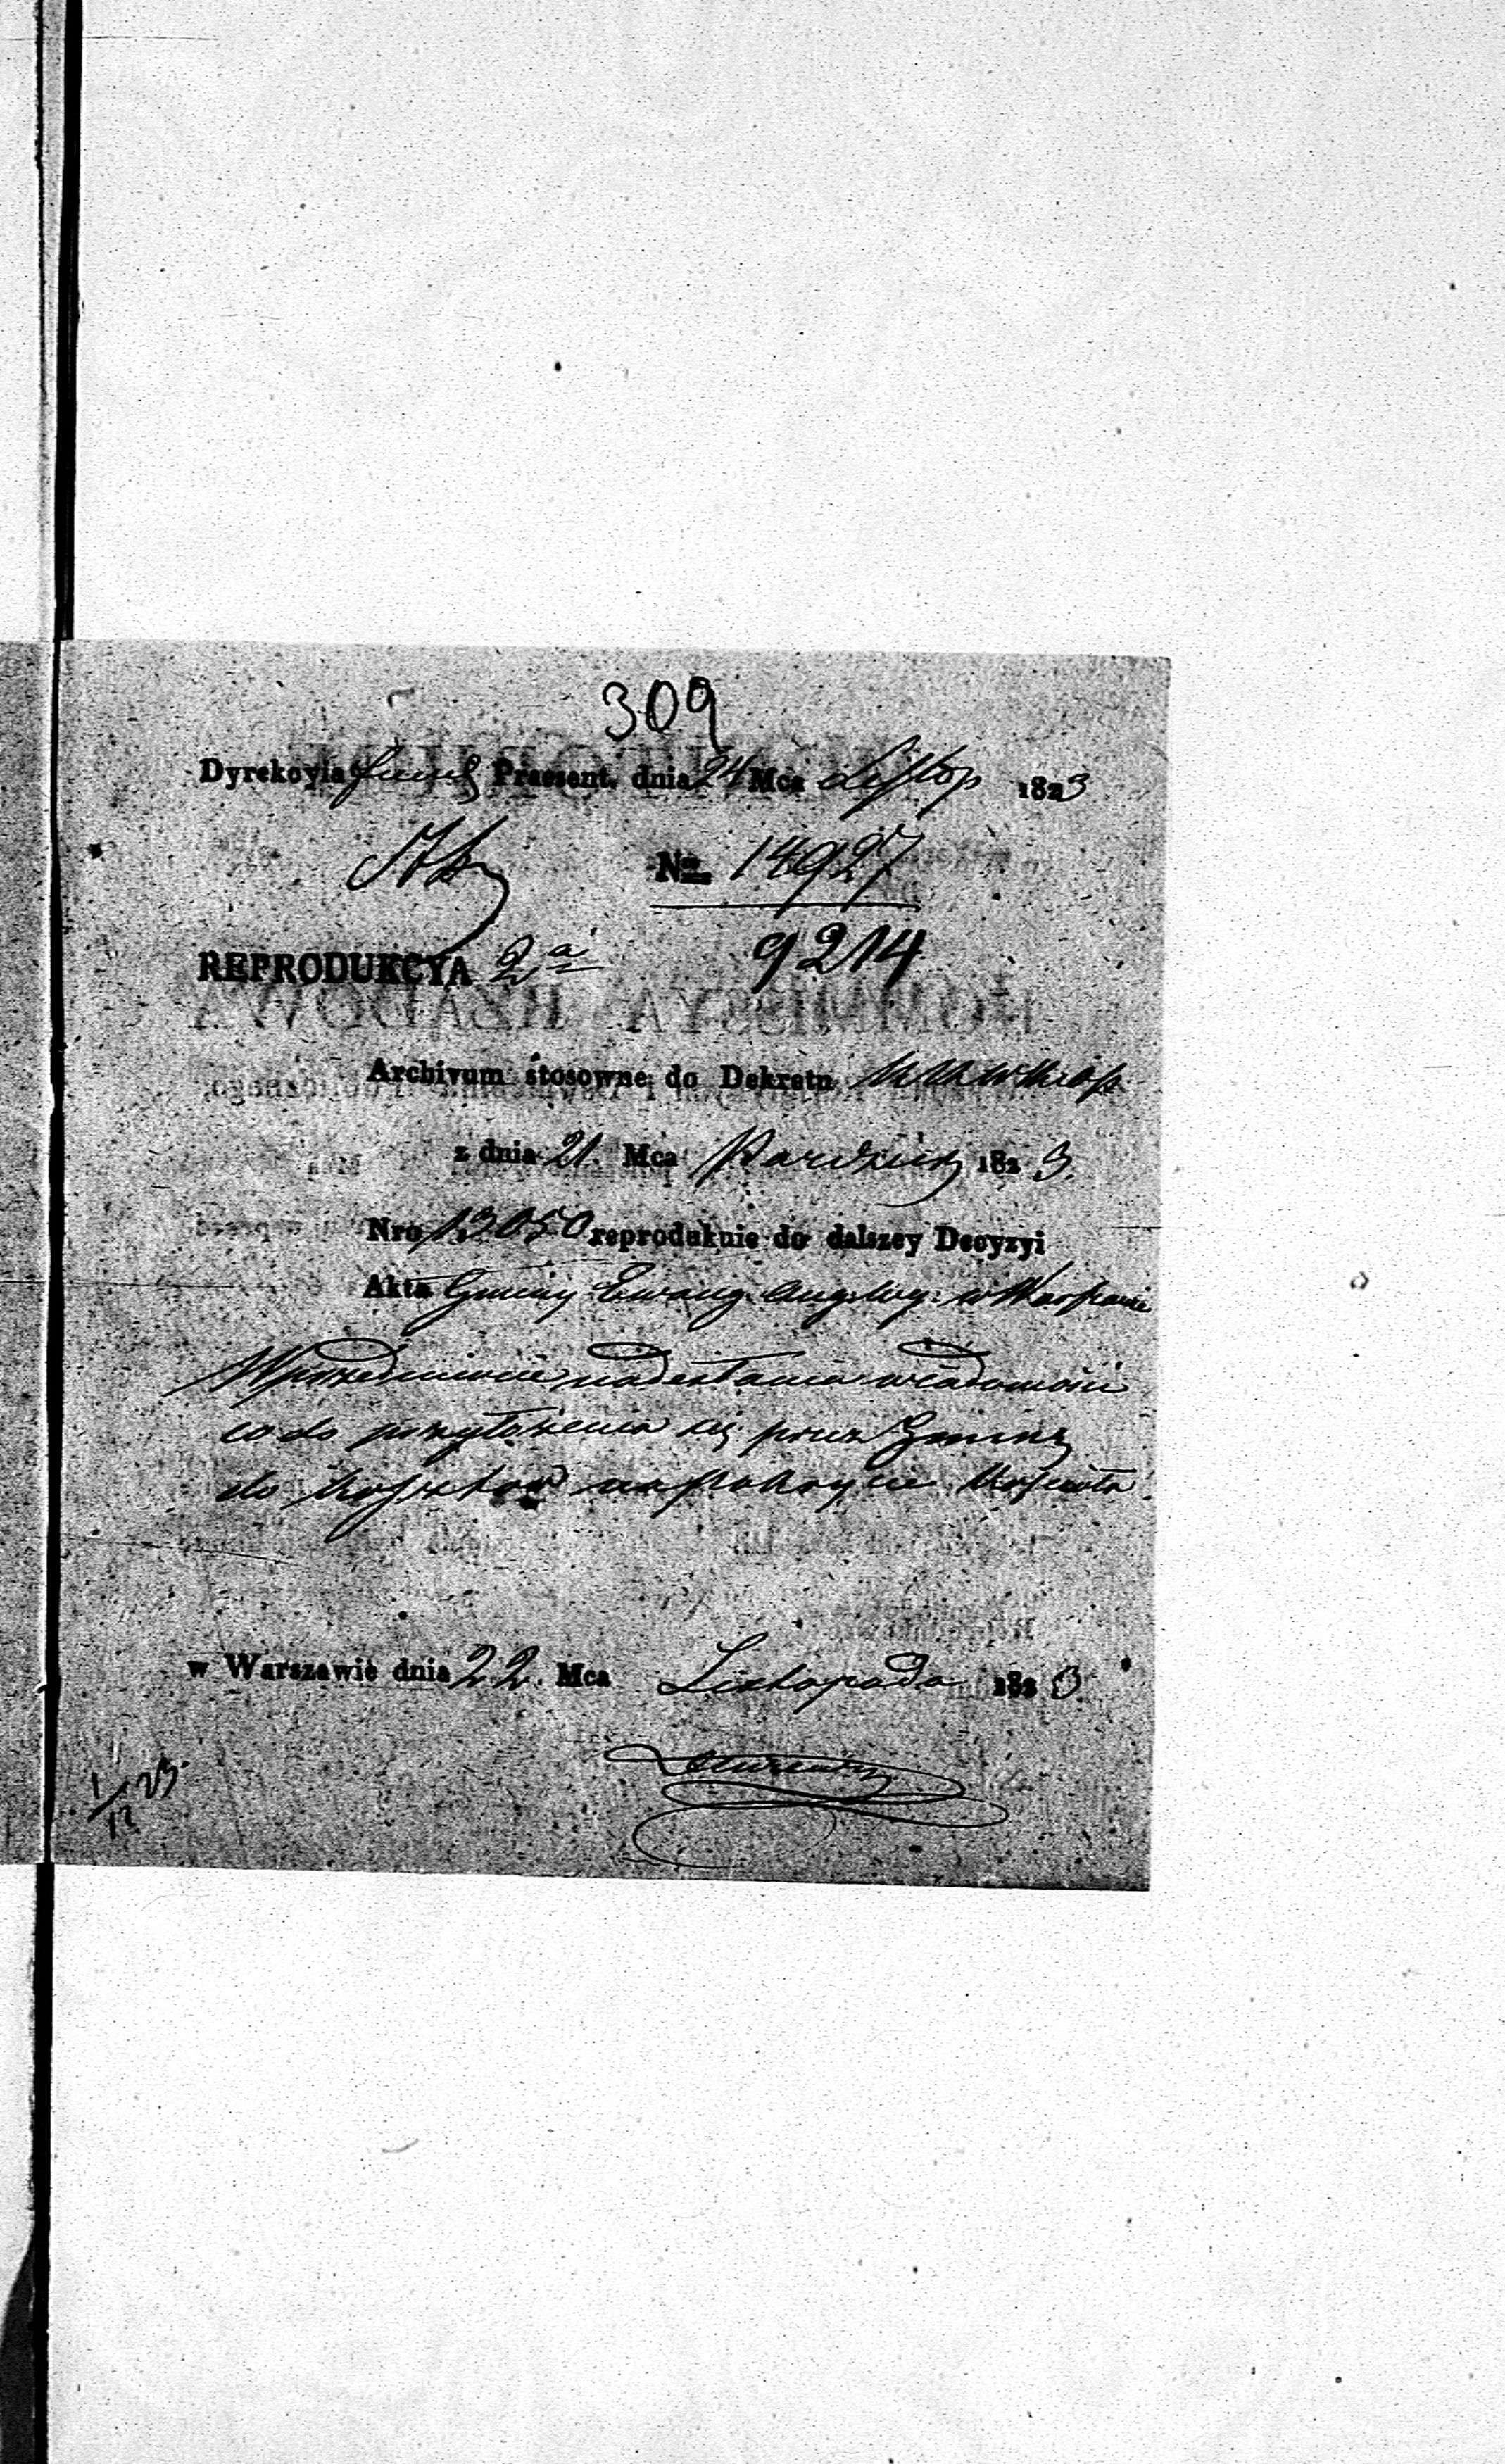 309
Dyrekcyia Praesent. dnia 24 Mca Listop 1823
Nro 14927
REPRODUKCYA 2a 9214
Archivum stosowne do Dekretu
z dnia 21. Mca Pazdzier 1823.
Nro 13050 reprodukuie do dalszey Decyzyi
Akta Gminy Ewang. Augsbrg. w Warszawie
nadesłania wiadomości
co do przyłożenia się przez Gminę
do kosztów na pokrycie Kościoła
w Warszawie dnia 22. Mca Listopada 1823
1/12 23.